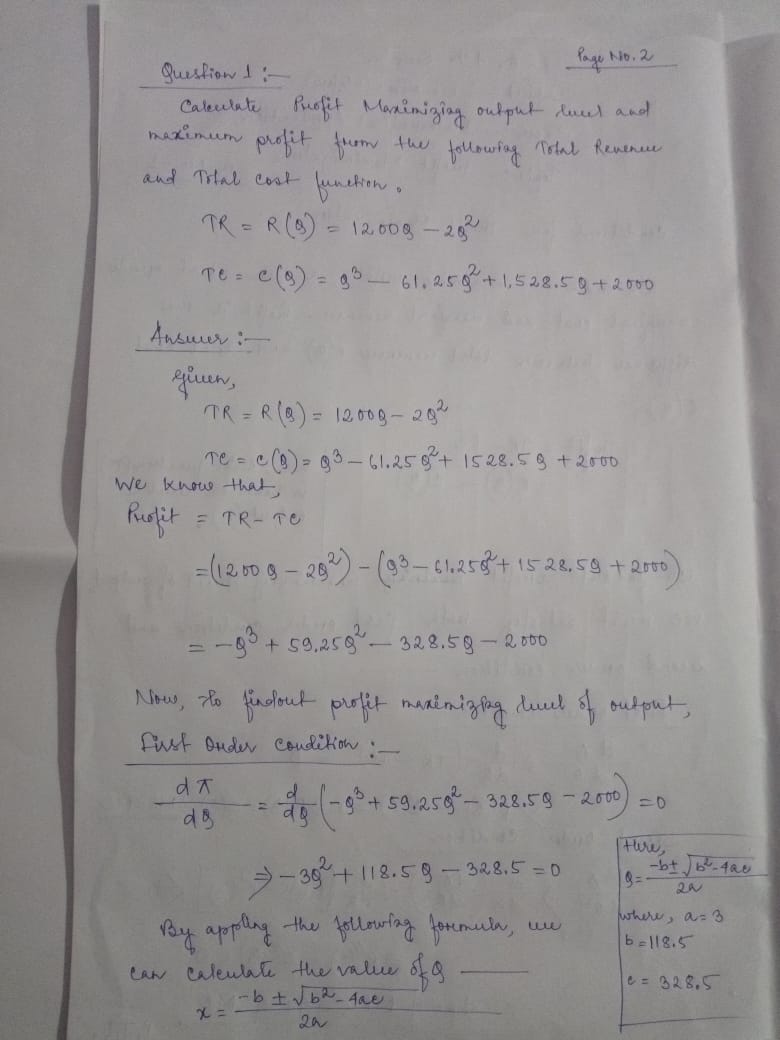 Page No. 2
Question 1 :—
Calculate Profit Maximizing output level and
maximum profit from the following Total Revenue
and Total cost function.
TR = R(Q) = 1200Q – 2Q²
TC = C(Q) = Q³ – 61.25Q² + 1,528.5Q + 2000
Answer :—
Given,
TR = R(Q) = 1200Q – 2Q²
TC = C(Q) = Q³ – 61.25Q² + 1528.5Q + 2000
We know that,
Profit = TR – TC
= (1200Q – 2Q²) – (Q³ – 61.25Q² + 1528.5Q + 2000)
= –Q³ + 59.25Q² – 328.5Q – 2000
Now, to findout profit maximizing level of output,
First Order Condition :—
dπ/dQ = d/dQ (–Q³ + 59.25Q² – 328.5Q – 2000) = 0
⇒ –3Q² + 118.5Q – 328.5 = 0
By appling the following formula, we
can calculate the value of Q ——
x = –b ± √b² – 4ac / 2a
Here,
Q = –b ± √b² – 4ac / 2a
where, a = 3
b = 118.5
c = 328.5